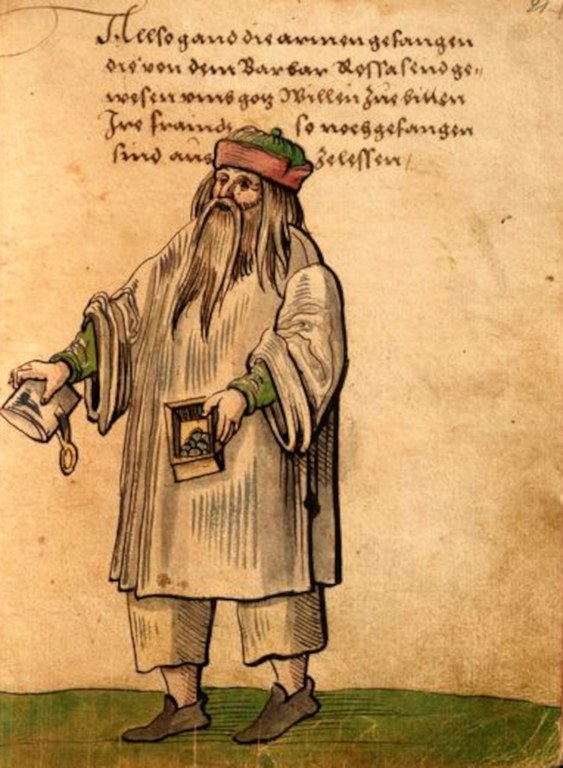 Allso gand die armen gefangen
die von dem Barbar Rossa send ge=
wesen vmb gotz Willen Zue bitten
Ire fraindt so noch gefangen
sind aus Zelessen /